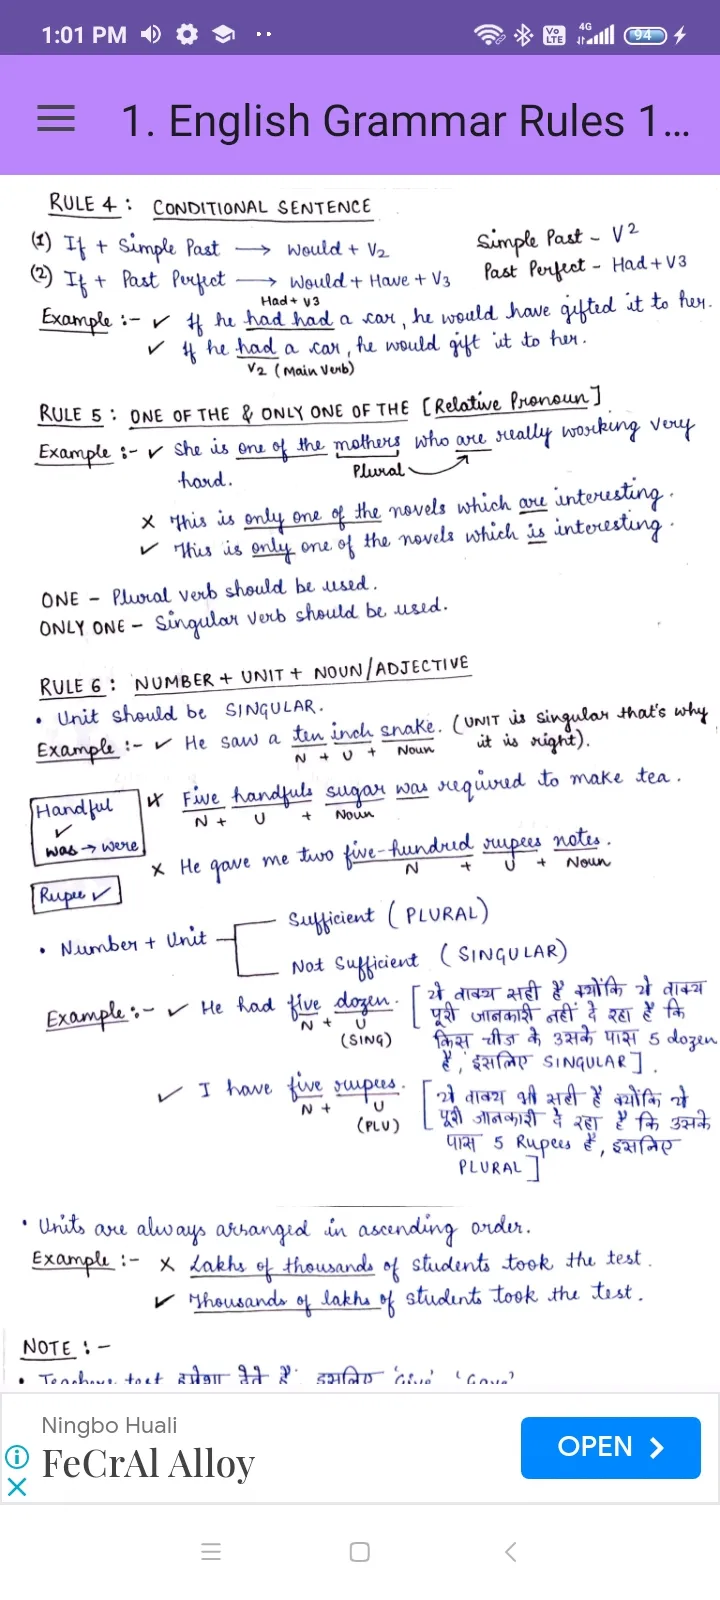 1:01 PM
4G
Vo LTE
94
1. English Grammar Rules 1...
RULE 4 : CONDITIONAL SENTENCE
(1) If + Simple Past → Would + V2
Simple Past - V2
(2) If + Past Perfect → Would + Have + V3
Past Perfect - Had + V3
Had + V3
Example :- ✓ If he had had a car, he would have gifted it to her.
✓ If he had a car, he would gift it to her.
V2 (Main Verb)
RULE 5 : ONE OF THE & ONLY ONE OF THE [Relative Pronoun]
Example :- ✓ She is one of the mothers who are really working very
hard.
Plural
× This is only one of the novels which are interesting.
✓ This is only one of the novels which is interesting.
ONE - Plural verb should be used.
ONLY ONE - Singular verb should be used.
RULE 6 : NUMBER + UNIT + NOUN/ADJECTIVE
• Unit should be SINGULAR.
Example :- ✓ He saw a ten inch snake. (UNIT is singular that's why
it is right).
N + U + Noun
Handful
✓
was → were
× Five handfuls sugar was required to make tea.
N + U + Noun
× He gave me two five-hundred rupees notes.
N + U + Noun
Rupee ✓
• Number + Unit
Sufficient (PLURAL)
Not Sufficient (SINGULAR)
Example :- ✓ He had five dozen. [ये वाक्य सही है क्योंकि ये वाक्य
N + U
(SING)
पूरी जानकारी नहीं दे रहा है कि
किस चीज के उसके पास 5 dozen
है, इसलिए SINGULAR].
✓ I have five rupees. [ये वाक्य भी सही है क्योंकि ये
N + U
(PLU)
पूरी जानकारी दे रहा है कि उसके
पास 5 Rupees है, इसलिए
PLURAL]
• Units are always arranged in ascending order.
Example :- × Lakhs of thousands of students took the test.
✓ Thousands of lakhs of students took the test.
NOTE :-
• Teachers test हमेशा देते हैं, इसलिए 'Give' 'Gave'
Ningbo Huali
FeCrAl Alloy
OPEN